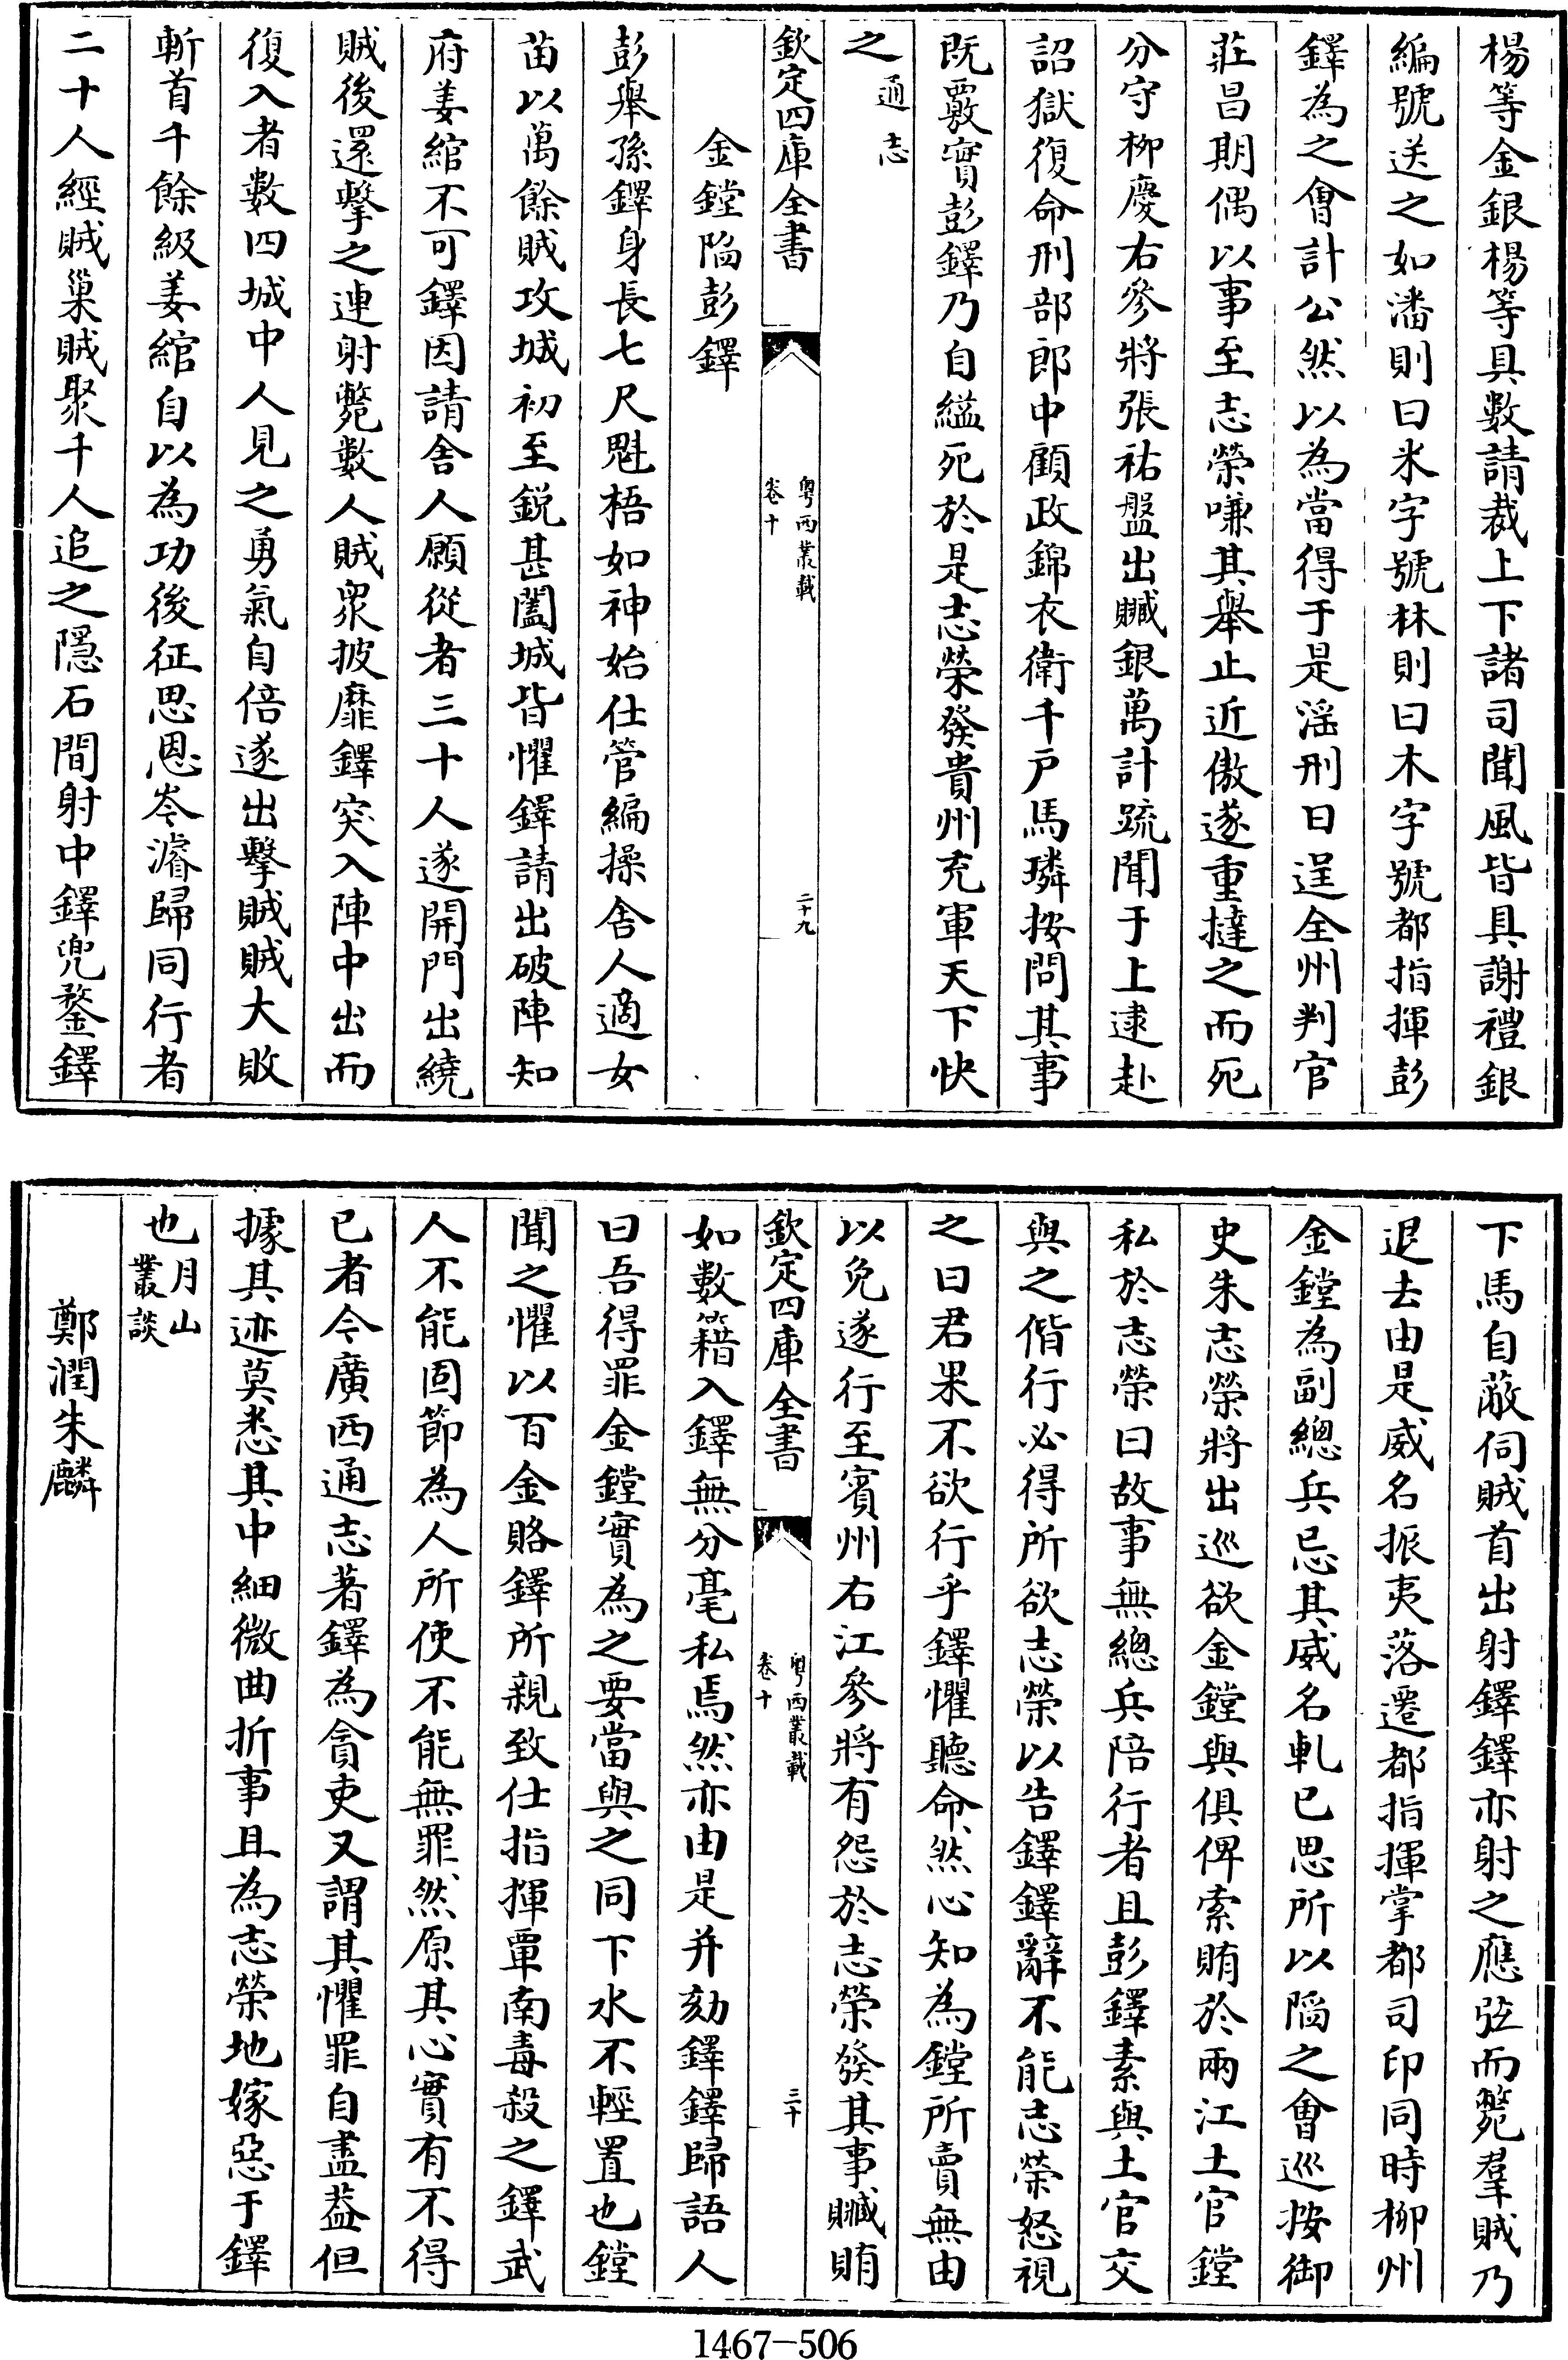 楊等金銀楊等具數請裁上下諸司聞風皆具謝禮銀
編號送之如潘則曰氺字號林則曰木字號都指揮彭
鐸為之會計公然以為當得于是滛刑日逞全州判官
莊昌期偶以事至志榮嗛其舉止近傲遂重撻之而死
分守柳慶右參將張祐盤出贓銀萬計疏聞于上逮赴
詔獄復命刑部郎中顧政錦衣衛千戸馬璘按問其事
既覈實彭鐸乃自縊死於是志榮發貴州充軍天下快
之通志
欽定四庫全書
粤西叢載
卷十
二十九
金鏜陷彭鐸
彭舉孫鐸身長七尺魁梧如神始仕管編操舎人適女
苗以萬餘賊攻城初至鋭甚闔城皆懼鐸請出破陣知
府姜綰不可鐸因請舎人願從者三十人遂開門出繞
賊後還擊之連射斃數人賊衆披靡鐸突入陣中出而
復入者數四城中人見之勇氣自倍遂出擊賊賊大敗
斬首千餘級姜綰自以為功後征思恩岑濬歸同行者
二十人經賊巢賊聚千人追之隱石間射中鐸兜鍪鐸
下馬自蔽伺賊首出射鐸鐸亦射之應弦而斃羣賊乃
退去由是威名振夷落遷都指揮掌都司印同時柳州
金鏜為副總兵忌其威名軋已思所以陷之會巡按御
史朱志榮將出巡欲金鏜與俱俾索賄於兩江土官鏜
私於志榮曰故事無總兵陪行者且彭鐸素與土官交
與之偕行必得所欲志榮以告鐸鐸辭不能志榮怒視
之曰君果不欲行乎鐸懼聽命然心知為鏜所賣無由
以免遂行至賓州右江參將有怨於志榮發其事贓賄
欽定四庫全書
粤西叢載
卷十
三十
如數籍入鐸無分毫私焉然亦由是并劾鐸鐸歸語人
曰吾得罪金鏜實為之要當與之同下水不輕置也鏜
聞之懼以百金賂鐸所親致仕指揮覃南毒殺之鐸武
人不能固節為人所使不能無罪然原其心實有不得
已者今廣西通志著鐸為貪吏又謂其懼罪自盡葢但
據其迹莫悉其中細微曲折事且為志榮地嫁惡于鐸
也月山叢談
鄭潤朱麟
1467-506